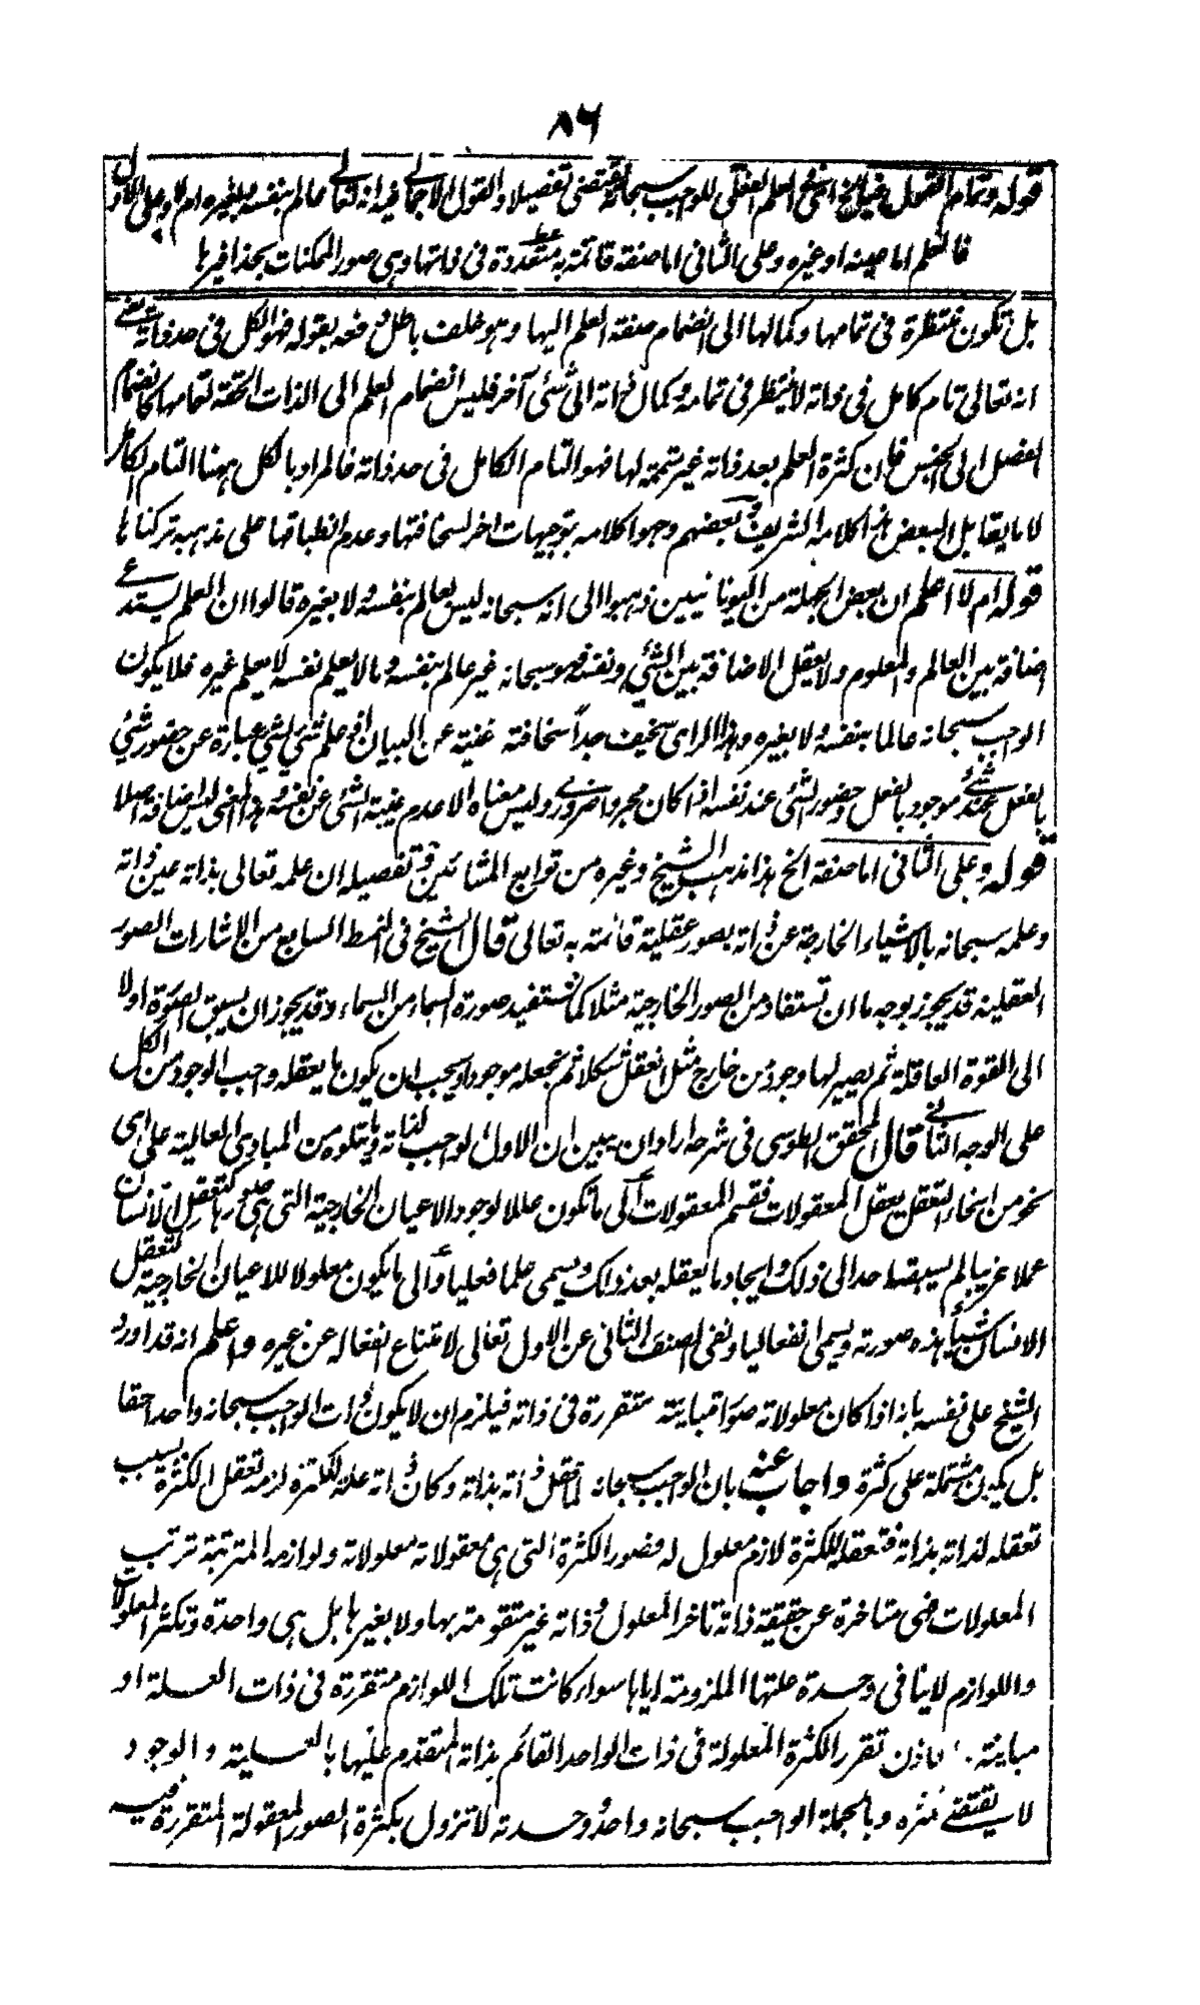 ٨٦
قوله وتمام القول فيه الخ العلم الفعلي للواجب سبحانه يقتضى تفصيلا والقول الاجمالى فيه انه تعالى عالم بنفسه وبغيره ام لا وعلى الاول
فالعلم اما عينه او غيره وعلى الثانى اما صفة قائمة به متعددة فى ذاتها وهى صور الممكنات بحذافيرها
بل تكون منتظرة فى تمامها وكمالها الى انضمام صفة العلم اليها وهو خلف باطل فدفعه بقوله فهو الكل فى حد ذاته يعنى
انه تعالى تام كامل فى ذاته لا ينتظر فى تمامه وكمال ذاته الى شئ آخر فليس انضمام العلم الى الذات الحقة لتمامها كانضمام
الفصل الى الجنس فان كثرة العلم بعد ذاته غير متممة لها فهو التام الكامل فى حد ذاته فالمراد بالكل ههنا التام الكامل
لا ما يقابل البعض هذا كلامه الشريف وبعضهم وجهوا كلامه بتوجيهات اخر لسخافتها وعدم انطباقها على مذهبه تركناها
قوله ام لا اعلم ان بعض الجهلة من اليونانيين ذهبوا الى انه سبحانه ليس بعالم بنفسه ولا بغيره قالوا ان العلم يستدعى
اضافة بين العالم والمعلوم ولا يعقل الاضافة بين الشئ ونفسه فهو سبحانه غير عالم بنفسه وما لا يعلم نفسه لا يعلم غيره فلا يكون
الواجب سبحانه عالما بنفسه ولا بغيره وهذا الراى سخيف جدا سخافته غنية عن البيان اذ علم شئ لشئ عبارة عن حضور شئ
بالفعل عند موجود بالفعل وحضور الشئ عند نفسه اذا كان مجردا ضرورى وليس معناه الا عدم غيبة الشئ عن نفسه وهذا المعنى ليس اضافة اصلا
قوله وعلى الثانى اما صفة الخ هذا مذهب الشيخ وغيره من توابع المشائين وتفصيله ان علمه تعالى بذاته عين ذاته
وعلمه سبحانه بالاشياء الخارجة عن ذاته بصور عقلية قائمة به تعالى قال الشيخ فى النمط السابع من الاشارات الصور
العقلية قد يجوز بوجه ما ان تستفاد من الصور الخارجية مثلا كما تستفيد صورة السماء من السماء وقد يجوز ان يسبق الصورة اولا
الى القوة العاقلة ثم يصير لها وجود من خارج مثل ما نعقل شكلا ثم نجعله موجودا ويجب ان يكون ما يعقله واجب الوجود من الكل
على الوجه الثانى قال المحقق الطوسى فى شرحه اراد ان يبين ان الاول الواجب لذاته وما يتلوه من المبادى العالية على اى
نحو من انحاء التعقل يعقل المعقولات فقسم المعقولات الى ما تكون عللا لوجود الاعيان الخارجية التى هى صورها كتعقل الانسان
عملا غريبا لم يسبقه احد الى ذلك وايجاد ما يعقله بعد ذلك ويسمى علما فعليا والى ما يكون معلولا للاعيان الخارجية كتعقل
الانسان شيئا هذه صورته ويسمى انفعاليا ونفى الصنف الثانى عن الاول تعالى لامتناع انفعاله عن غيره واعلم انه قد اورد
الشيخ على نفسه بانه اذا كان معلولاته صورا متباينة متقررة فى ذاته فيلزم ان لا يكون ذات الواجب سبحانه واحدا حقا
بل يكون مشتملة على كثرة واجاب عنه بان الواجب سبحانه لما عقل ذاته بذاته وكان ذاته علة للكثرة لزمه تعقل الكثرة بسبب
تعقله لذاته بذاته فتعقله للكثرة لازم معلول له فصور الكثرة التى هى معقولاته معلولاته ولوازمه المترتبة ترتب
المعلولات فهى متاخرة عن حقيقة ذاته تاخر المعلول وذاته غير متقومة بها ولا بغيرها بل هى واحدة وتكثر المعلولات
واللوازم لا ينافى وحدة علتها الملزومة اياها سواء كانت تلك اللوازم متقررة فى ذات العلة او
مباينة فاذن تقرر الكثرة المعلولة فى ذات الواحد القائم بذاته المتقدم عليها بالعلية والوجود
لا يقتضى تكثره وبالجملة الواجب سبحانه واحد ووحدته لا تزول بكثرة الصور المعقولة المتقررة فيه